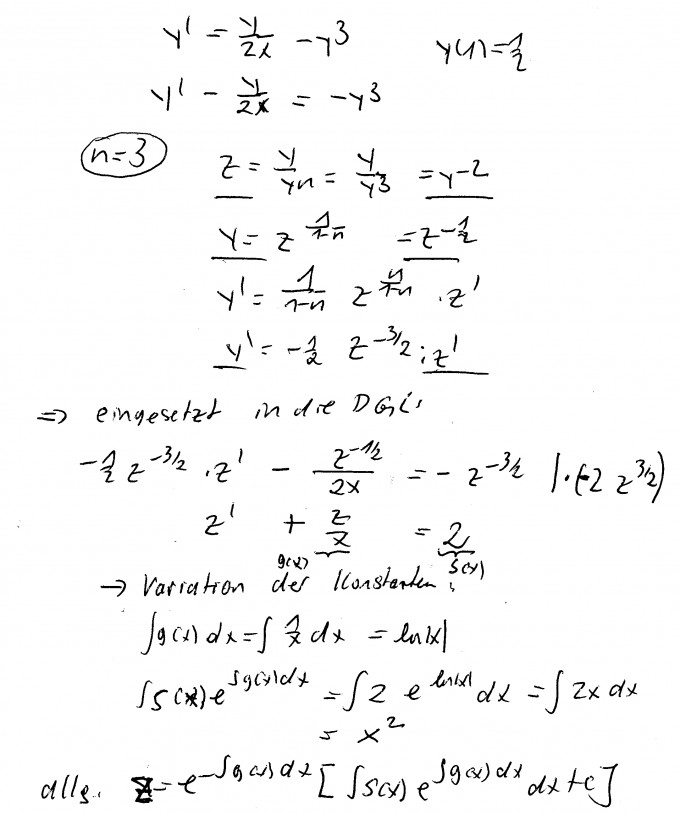 y' = y/2x - y³   y(1) = 1/2
y' - y/2x = -y³
n=3   z = y/yⁿ = y/y³ = y⁻²
y = z^(1/(1-n)) = z^(-1/2)
y' = 1/(1-n) z^(n/(1-n)) · z'
y' = -1/2 z^(-3/2) · z'
⇒ eingesetzt in die DGL:
-1/2 z^(-3/2) · z' - z^(-1/2)/2x = - z^(-3/2) |·(-2 z^(3/2))
z' + z/x = 2
g(x)   S(x)
→ Variation der Konstanten:
∫g(x) dx = ∫ 1/x dx = ln|x|
∫S(x) e^(∫g(x)dx) = ∫2 e^(ln|x|) dx = ∫2x dx
= x²
allg. z = e^(-∫g(x)dx) [ ∫S(x) e^(∫g(x)dx) dx + c ]